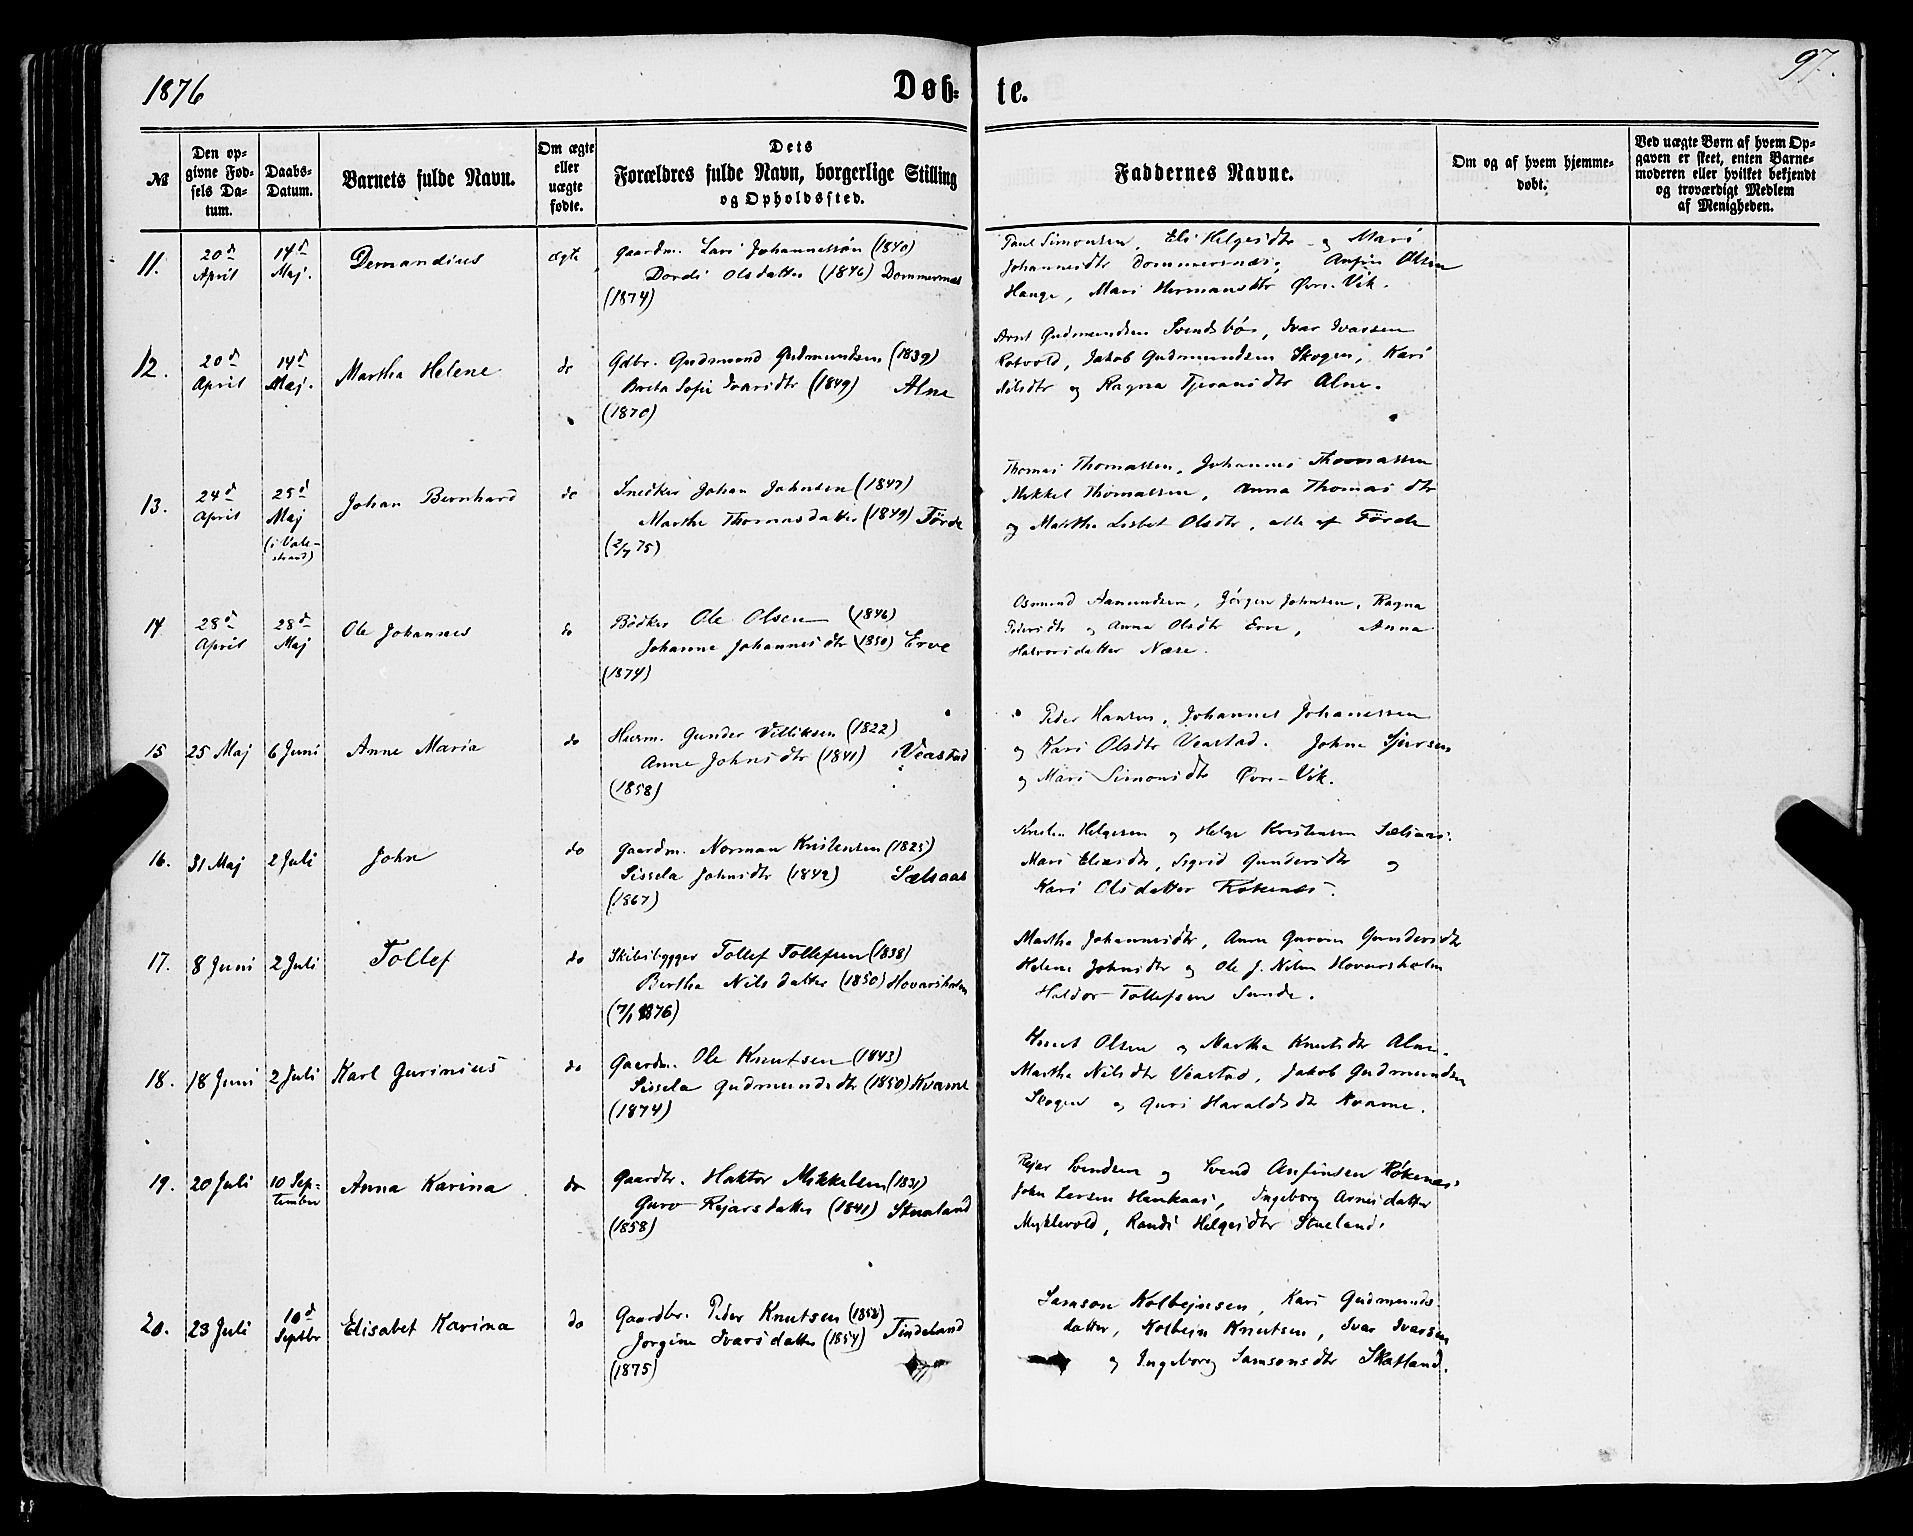 1876
Døb-
te.
97.
№
Den op-
givne Fød-
sels Da-
tum.
Daabs-
Datum.
Barnets fulde Navn.
Om ægte
eller
uægte
fødte.
Dets
Forældres fulde Navn, borgerlige Stilling
og Opholdssted.
Faddernes Navne.
Om og af hvem hjemme-
døbt.
Ved uægte Børn af hvem Op-
gaven er skeet, enten Barne-
moderen eller hvilket bekjendt
og troværdigt Medlem
af Menigheden.
11.
20d
April
14d
Maj.
Demandius
ægte
Gaardm. Lars Johannessøn (1840)
Dordi Olsdatter (1846) Dommersnes
(1874)
Paul Simonsen, Eli Helgesdtr og Mari
Johannesdtr Dommersnæs, Anfin Olsen
Hauge, Mari Hermansdtr Øvre-Vik.
12.
20d
April
14d
Maj.
Martha Helene
do
Gdbr. Gudmund Gudmundsen (1839)
Breta Sofie Ivarsdtr (1849) Alne
(1870)
Arnt Gudmundsen Svendsbø, Ivar Ivarsen
Jakob Gudmundsen Skogen, Kari
Nilsdtr og Ragna Alne.
13.
24d
April
25d
Maj
(i Vale-
strand)
Johan Bernhard
do
Snedker Johan Johnsen (1847)
Marthe Thomasdatter (1849) Førde
(2/7 75)
Thomas Thomassen, Johannes Thomassen
Mikkel Thomassen, Anna Thomasdtr
og Martha Lisbet Olsdtr, alle af Førde
14
28d
April
28d
Maj
Ole Johannes
do
Bødker Ole Olsen (1846)
Johanne Johannesdtr (1850) Erve
(1874)
Osmund Aamundsen, Jørgen Johnsen, Ragna
Pedersdtr og Anna Olsdtr Erve, Anna
Halvorsdatter Næse.
15
25 Maj
6 Juni
Anne Maria
do
Husm. Gunder Villiksen (1822)
Anne Johnsdtr (1841) Veastad
(1858)
Peder Hansen, Johannes Johanessen
og Kari Olsdtr Veastad. Johne Sjursen
og Mari Simonsdtr Øvre-Vik.
16.
31 Maj
2 Juli
John
do
Gaardm. Norman Kristensen (1825)
Sissela Johnsdtr (1842) Sælsaas
(1867)
Helgesen og Helge Kristensen Sælsaas.
Mari Eliasdtr, Sigrid Gundersdtr og
Kari Olsdatter Røkenes.
17.
8 Juni
2 Juli
Tollef
do
Skibsbygger Tollef Tollefsen (1838)
Bertha Nilsdatter (1850) Hovarsholm
(7/1 1876)
Martha Johannesdtr, Anne Gurine Gundersdtr
Helene Johnsdtr og Ole J. Nilsen Hovarsholm
Haldor Tollefsen Sunde.
18.
18 Juni
2 Juli
Karl Gurinius
do
Gaardm. Ole Knutsen (1843)
Sissela Gudmundsdtr (1850) Kvame
(1874)
Knut Olsen og Martha Knutsdtr Alne.
Martha Nilsdtr Veastad, Jakob Gudmundsen
Skogen og Guri Haraldsdtr Kvame.
19.
20 Juli
10 Sep-
tember
Anna Karina
do
Gaardbr. Haktor Mikkelsen (1831)
Guro Rejarsdatter (1841) Stueland
(1858)
Rejar Svendsen og Svend Anfinsen Røkenes
John Larsen Haukaas, Ingeborg Arnesdatter
Myklevold, Randi Helgesdtr Stueland.
20.
23 Juli
10d
Septbr
Elisabet Karina
do
Gaardbr. Peder Knutsen (1852)
Jorgine Ivarsdatter (1854) Tindeland
(1875)
Samson Kolbejnsen, Kari Gudmunds-
datter, Kolbejn Knutsen, Ivar Ivarsen
og Ingeborg Samsonsdtr Skatland.